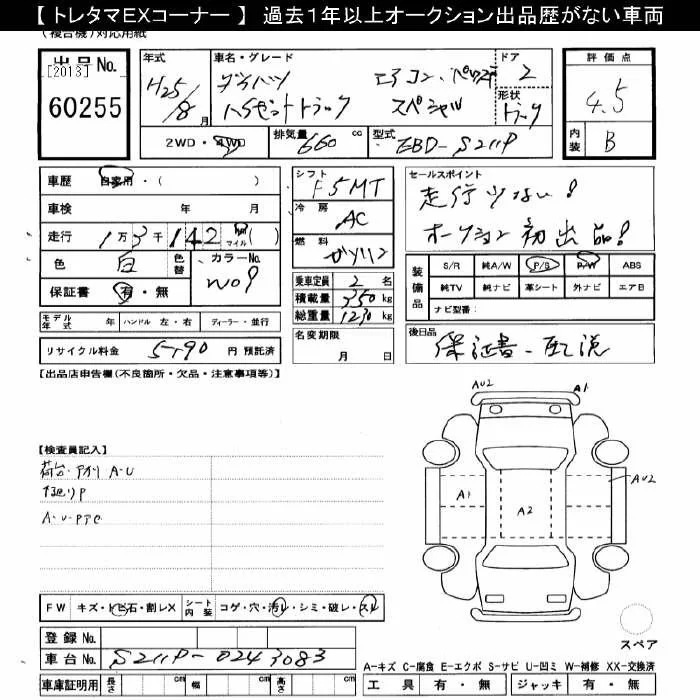 【 トレタマEXコーナー 】 過去1年以上オークション出品歴がない車両
(複合機)対応用紙
出品No.
[2013]
60255
年式
H25/8月
車名・グレード
ダイハツ エアコン・パワステ
ハイゼットトラック スペシャル
ドア
2
形状
トラック
評価点
4.5
内装
B
2WD・4WD
排気量 660 cc
型式 EBD-S211P
車歴 自家用・( )
車検 年 月
走行 1万3千142 km マイル ( )
色 白 色替
カラーNo. W09
保証書 有・無
シフト F5MT
冷房 AC
燃料 ガソリン
乗車定員 2 名
積載量 350 kg
総重量 1230 kg
セールスポイント
走行少ない!
オークション初出品!
装備品
S/R 純A/W P/S P/W ABS
純TV 純ナビ 革シート 外ナビ エアB
ナビ型番:
モデル年式 年 ハンドル 左・右 ディーラー・並行
リサイクル料金 5190 円 預託済
名変期限
月 日
後日品
保証書・取説
【出品店申告欄(不良箇所・欠品・注意事項等)】
【検査員記入】
荷台・アオリ A-U
下廻りP
A・U・PTC
AU2
A1
AU2
A1
A2
スペア
FW キズ・トビ石・割レX シート内装 コゲ・穴・汚レ・シミ・破レ・スレ
登録No.
車台No. S211P-0243083
車庫証明用 長さ cm 幅 cm 高さ cm
A-キズ C-腐食 E-エクボ S-サビ U-凹ミ W-補修 XX-交換済
工具 有・無 ジャッキ 有・無